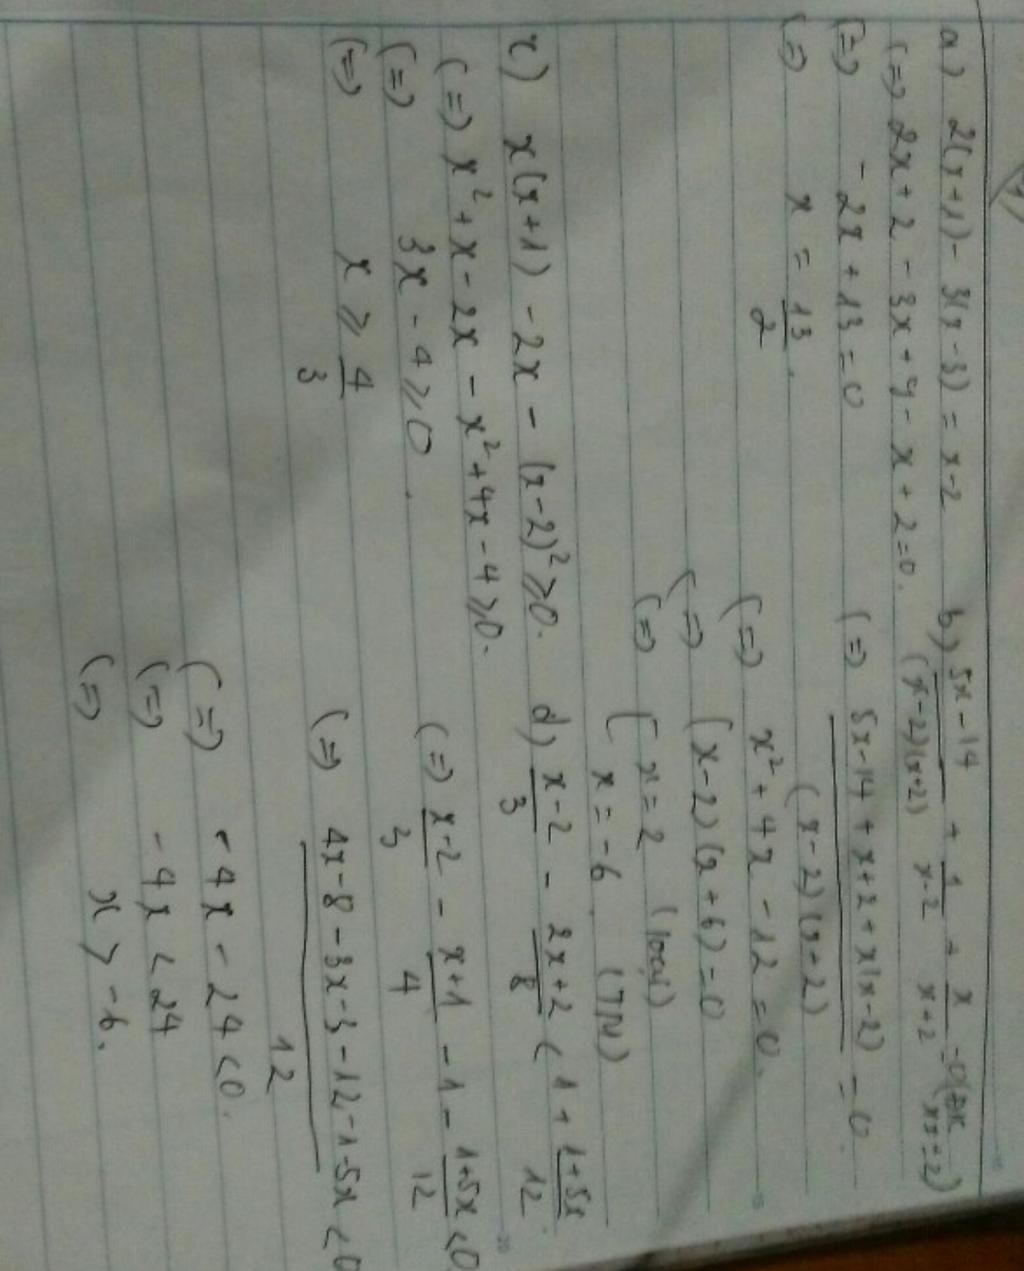 a) 2(x+1) - 3(x-3) = x-2
(=) 2x + 2 - 3x + 9 - x + 2 = 0.
(=) - 2x + 13 = 0
(=) x = 13/2.
b) (5x-14)/((x-2)(x+2)) + 1/(x-2) + x/(x+2) = 0
(=) (5x-14 + x+2 + x(x-2))/((x-2)(x+2)) = 0.
(=) x² + 4x - 12 = 0.
(=) (x-2)(x+6) = 0
(=) [ x = 2 (loại)
x = -6 (TM)
c) x(x+1) - 2x - (x-2)² ≥ 0.
(=) x² + x - 2x - x² + 4x - 4 ≥ 0.
(=) 3x - 4 ≥ 0.
(=) x ≥ 4/3
d) (x-2)/3 - (2x+2)/8 < 1 + (1+5x)/12
(=) (x-2)/3 - (x+1)/4 - 1 - (1+5x)/12 < 0
(=) (4x-8-3x-3-12-1-5x)/12 < 0
(=) - 4x - 24 < 0.
(=) - 4x < 24
(=) x > -6.